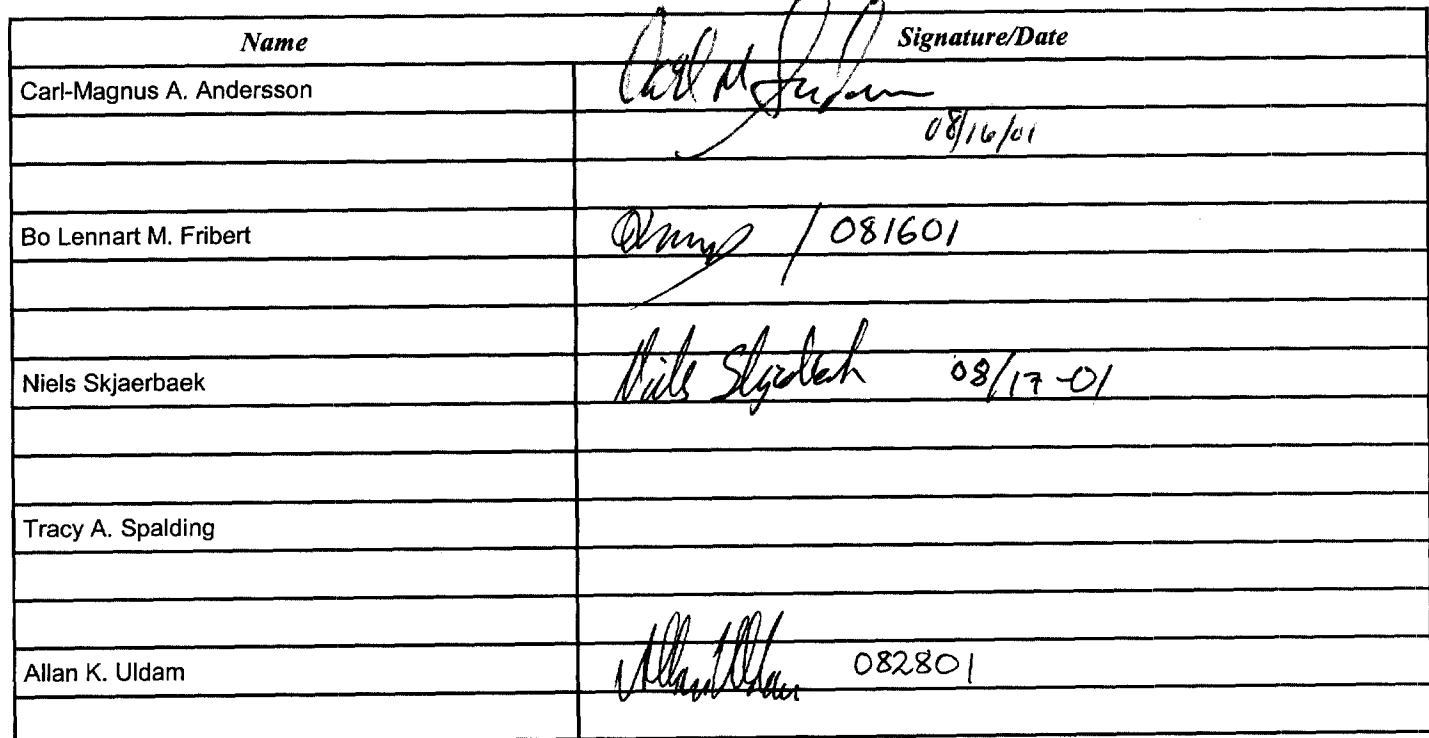 Name Signature/Date
Carl-Magnus A. Andersson Carl M
08/16/01
Bo Lennart M. Fribert / 081601
Niels Skjaerbaek Niels Skjaerbaek 08/17-01
Tracy A. Spalding
Allan K. Uldam Allan Uldam 082801